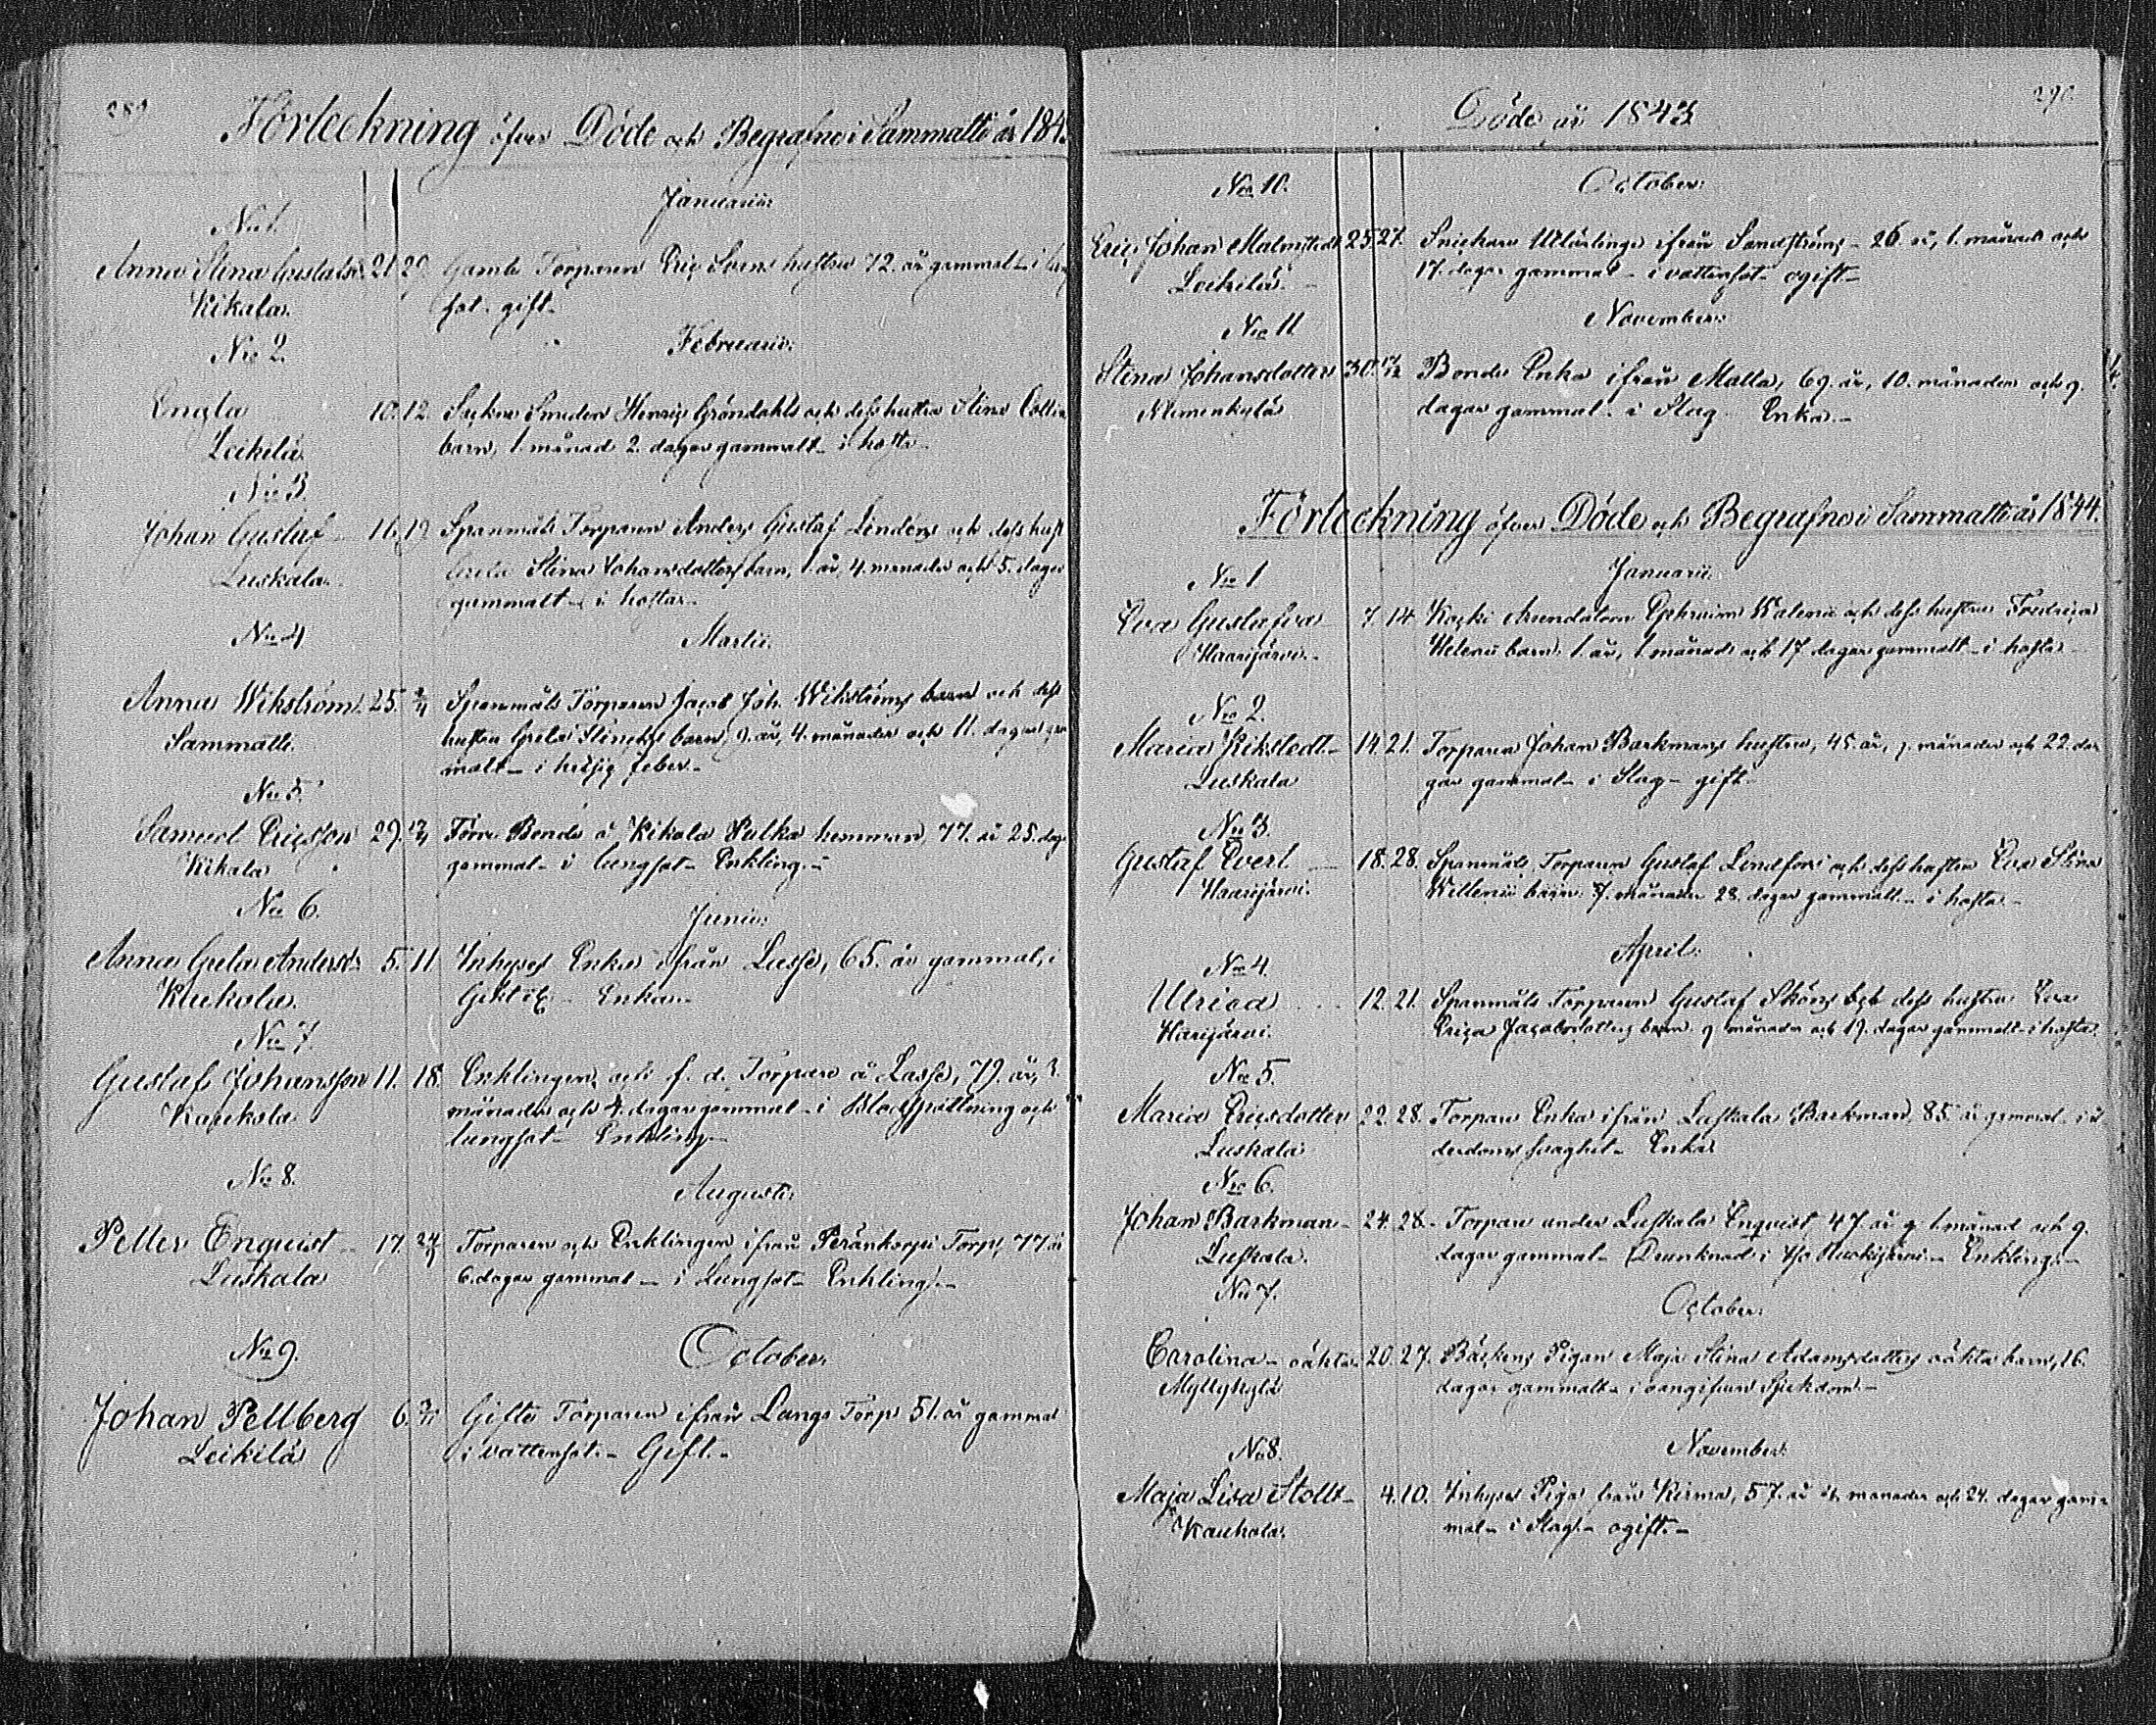 289
Förteckning öfver Döde och Begrafne i Sammatti år 184
Januarii:
No 1.
Anna Stina Gustafsd. 21. 29. Gamle Torparen Eric hustru 72. år gammal - i
Kikala. sot. gift.
No 2. Februarii.
Engla 10. 12. Socken Smeden Henric Gröndahls och dess hustru Stina
Leikilä. barn, 1. månad 2. dagar gammalt - i hosta -
No 3.
Johan Gustaf - 16. 19. Spanmåls Torparen Anders Gustaf Linders och dess hust
Luskala. Greta Stina Johansdotters barn, 1. år, 4. månader och 5. dagar
gammalt - i hosta -
No 4 Martii.
Anna Wikström. 25. Spanmåls Torparen Jacob Joh. Wikströms barn och dess
Sammatti. hustru Greta barn, 9. år, 4. månader och 11. dagar gam
malt - i hetsig feber -
No 5.
Samuel Ericsson 29. Förre Bonde å Kikala Pulka hemman, 77. år 25. dag
Kikala gammal - i lungsot - Enkling. -
No 6. Junii:
Anna Greta Andersd. 5. 11. Inhyses Enka ifrån Lasse, 65. år gammal, i
Kaukola. Enka. -
No 7.
Gustaf Johansson 11. 18. Enklingen och f. d. Torpare å Lasse, 79. år, 3.
Kaukola månader och 4. dagar gammal - i och
lungsot - Enkling -
No 8. Augusti.
Petter Enquist - 17. Torparen och Enklingen ifrån Peränkorpi Torp, 77 år
Luskala 6. dagar gammal - i Lungsot - Enkling. -
No 9. October.
Johan Pellberg 6. Gifte Torparen ifrån Långs Torp 51. år gammal
Leikilä i vattensot. - Gift. -
290
Döde år 1843
No 10. October:
Eric Johan Malmstedt 25. 27. Snickare Utlärlinge ifrån Sandströms - 26. år, 1. månad och
Leikilä. - 17. dagar gammal - i vattensot - ogift -
No 11 November:
Stina Johansdotter 30. Bonde Enka ifrån Malla, 69. år, 10. månader och 9.
Niemenkylä dagar gammal. i Slag - Enka. -
Förteckning öfver Döde och Begrafne i Sammatti år 1844.
No 1 Januarii.
Eva Gustafva 7. 14. Koski Arendatorn Ephraim Walenii och dess hustru Fredrica
Haarijärvi. - barn. 1. år, 1 månad och 17 dagar gammalt - i hosta -
No 2.
Maria Kikstedt - 14. 21. Torparen Johan Barkmans hustru, 45. år, 9. månader och 22. da
Luskala gar gammal - i Slag - gift -
No 3.
Gustaf Evert - 18. 28. Spanmåls Torparen Gustaf Lindfors och dess hustru Eva Stina
Haarijärvi. Willenii barn. 7. månader 28. dagar gammalt - i hosta -
April.
No 4.
Ulrica 12. 21. Spanmåls Torparen Gustaf Sköns och dess hustru Eva
Harijärvi. Erica Jacobsdotters barn. 9 månader och 19. dagar gammalt - i hosta.
No 5.
Maria Ericsdotter 22. 28. Torpare Enka ifrån Luskala Barkman, 85. år gammal - i ål
Luskala derdoms svaghet - Enka
No 6.
Johan Barkman - 24. 28. - Torpare under Luskala Enquist 47. år 1 månad och 9.
Luskala. dagar gammal - Drunknad i - Enkling. -
No 7. October.
Carolina - oäkta 20. 27. Bäckens Pigan Maja Stina Adamsdotters oäkta barn, 16.
Myllykylä dagar gammalt - i oangifven Sjukdom -
No 8. November.
Maja Lisa Stolt - 4. 10. Inhyses Piga från Kirma, 57. år månader och 24. dagar gam-
Kaukola. mal - i Slag. - ogift. -